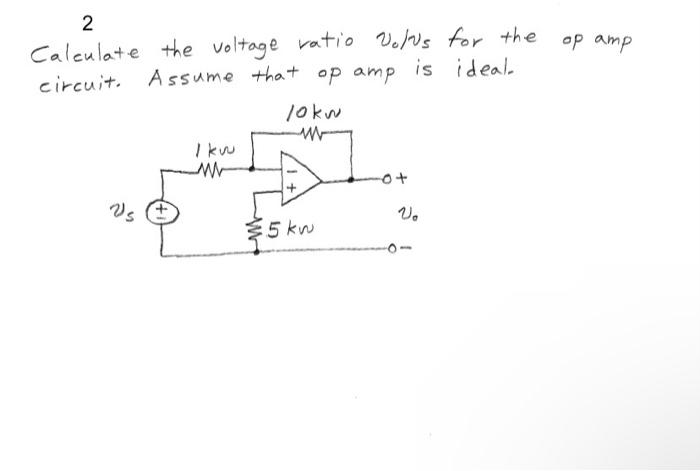 2
Calculate the voltage ratio Vo/Vs for the op amp
circuit. Assume that op amp is ideal.
10kw
1kw
Vs
+
-
-
+
5 kw
+
Vo
-